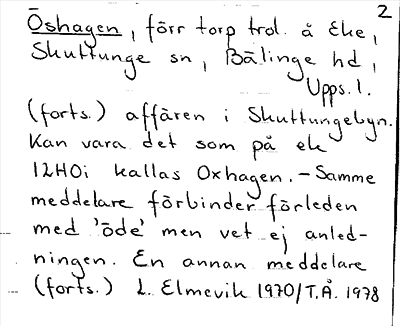 2
Öshagen, förr torp trol. å Eke,
Skuttunge sn, Bälinge hd,
Upps. l.
(forts.) affären i Skuttungebyn.
Kan vara det som på ek
12H0i kallas Oxhagen. – Samme
meddelare förbinder förleden
med 'öde' men vet ej anled-
ningen. En annan meddelare
(forts.) L. Elmevik 1970/T.Å. 1978